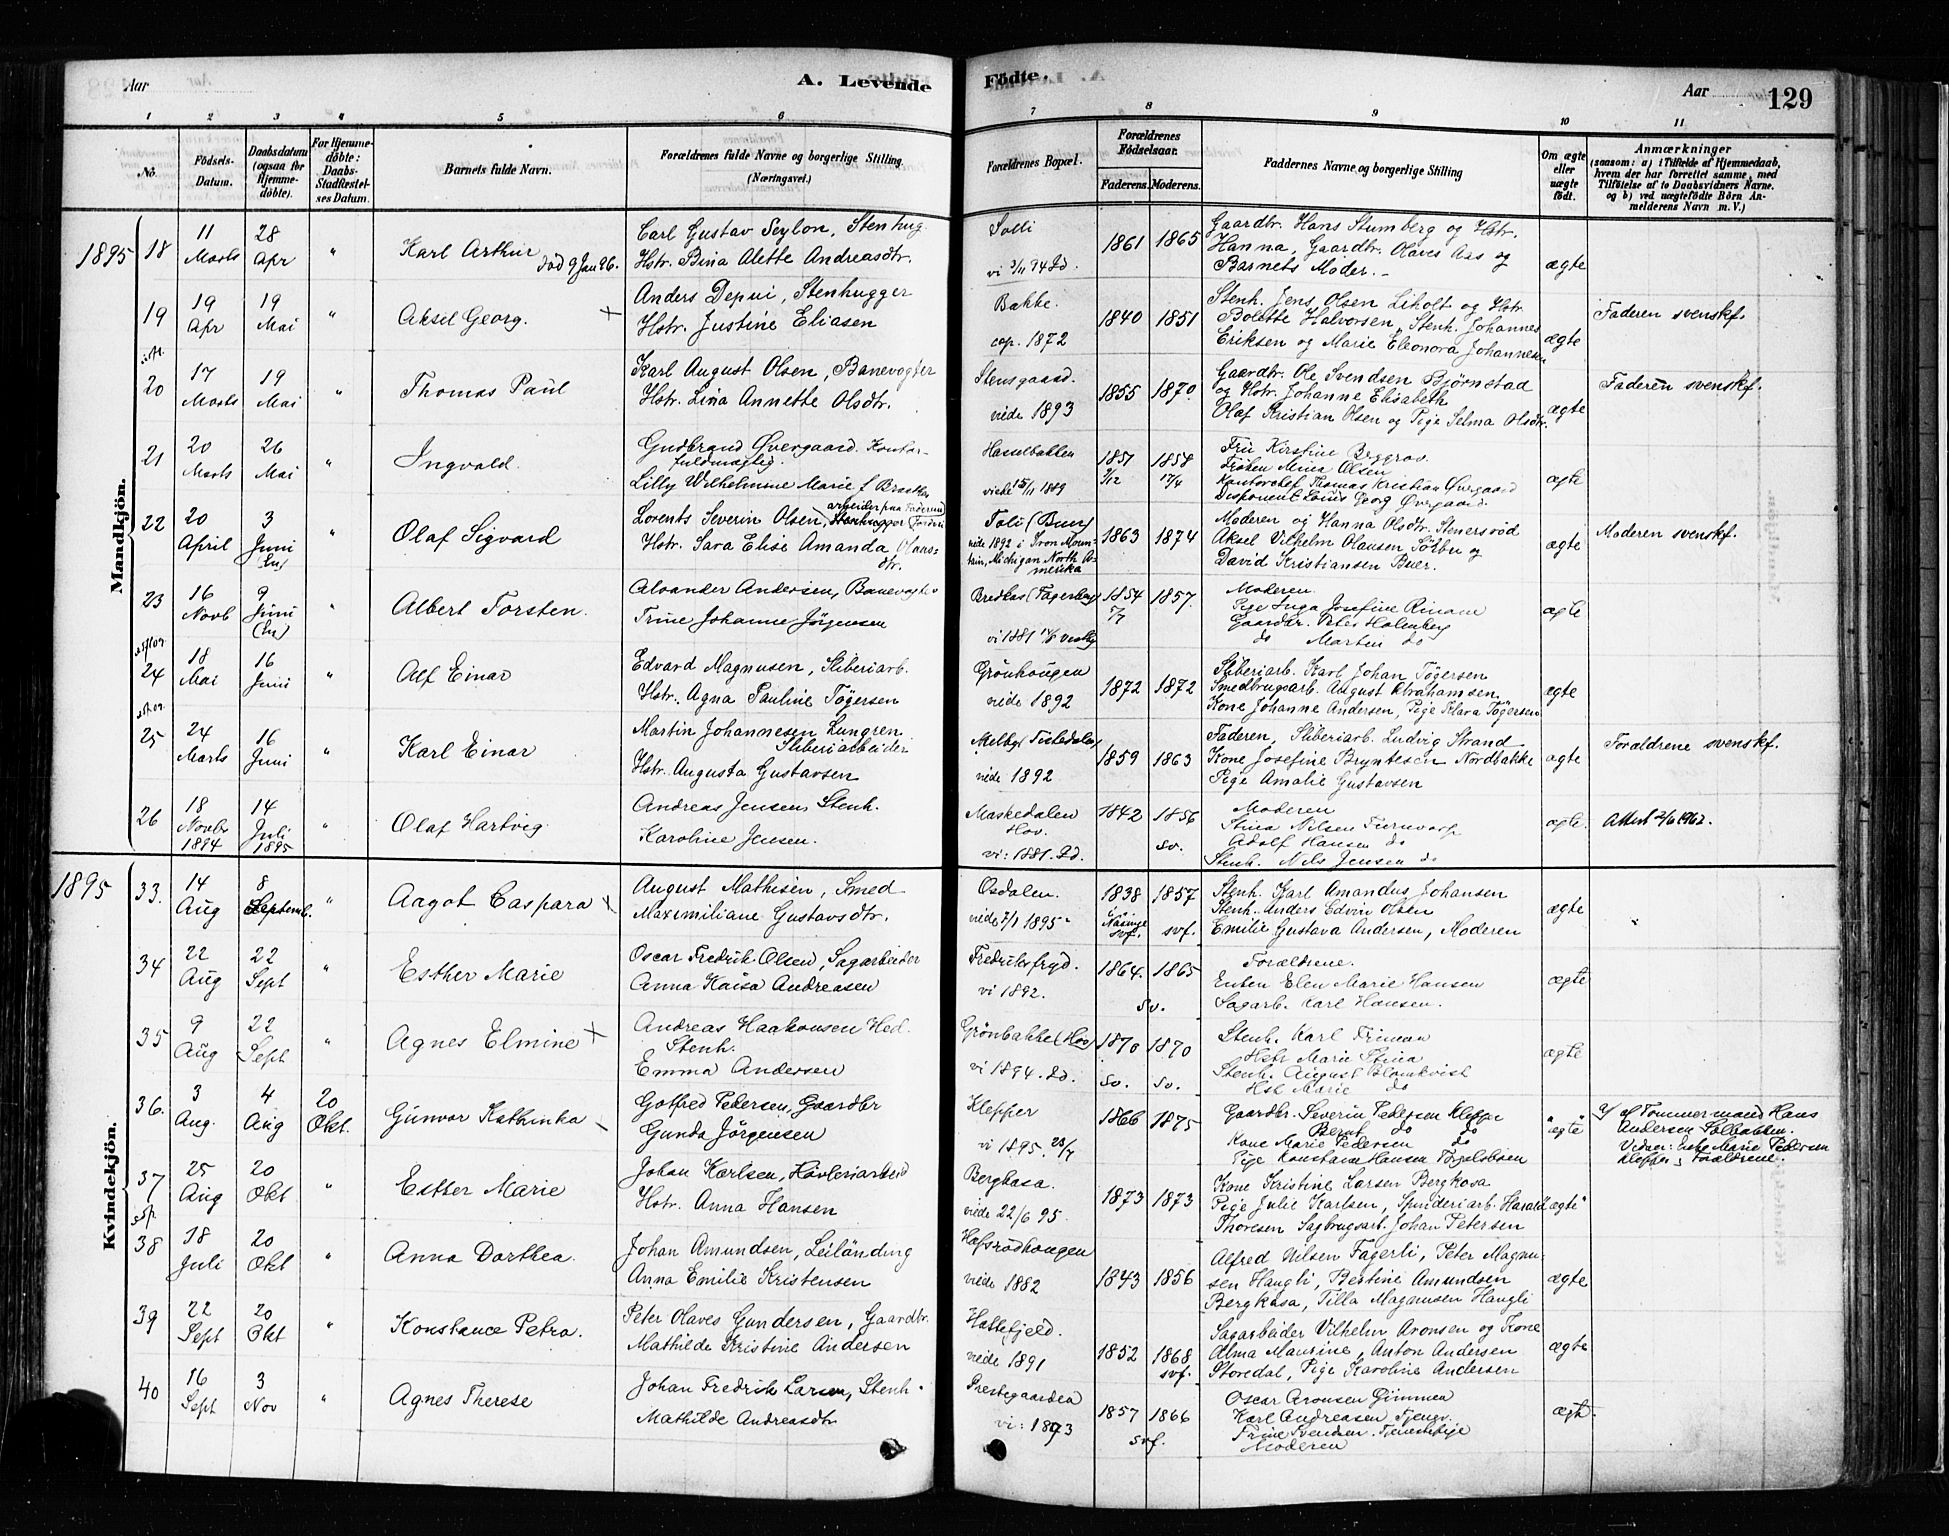 Aar
A. Levende
Fødte.
Aar
129
1 2 3 4 5 6 7 8 9 10 11
No.
Fødsels-Datum.
Daabsdatum (ogsaa for Hjemmedøbte).
For Hjemmedøbte: Daabs-Stadfæstelses Datum.
Barnets fulde Navn.
Forældrenes fulde Navne og borgerlige Stilling (Næringsvei.)
Forældrenes Bopæl.
Forældrenes Fødselsaar.
Faderens. Moderens.
Faddernes Navne og borgerlige Stilling
Om ægte eller uægte født.
Anmærkninger
(saasom: a) i Tilfælde af Hjemmedaab, hvem der har forrettet samme, med Tilføielse af to Daabsvidners Navne. og b) ved uægtefødte Börn Anmelderens Navn m.V.)
Mandkjön.
1895 18 11 Marts 28 Apr " Karl Arthur død 9 Jan 96.
Carl Gustav Seylon, Stenhug.
Hstr. Bina Alette Andreasdtr.
Solli
1861 1865
Gaardbr. Hans Stumberg og Hstr.
Hanna, Gaardbr. Olaves Aas og
Barnets Moder. -
ægte
19 19 Apr 19 Mai " Aksel Georg.
Anders Depui, Stenhugger
Hstr. Justine Eliasen
Bakke.
cop. 1872
1840 1851
Stenh. Jens Olsen Liholt og Hstr.
Bolette Halvorsen, Stenh. Johannes
Eriksen og Marie Eleonora Johannesen
ægte
Faderen svenskf.
20 17 Marts 19 Mai " Thomas Paul
Karl August Olsen, Banevogter
Hstr. Lina Annette Olsdtr.
Stensgaard.
viede 1893
1855 1870
Gaardbr. Ole Svendsen Bjørnstad
og Hstr. Johanne Elisabeth
Olaf Kristian Olsen og Pige Selma Olsdtr.
ægte
Faderen svenskf.
21 20 Marts 26 Mai " Ingvald.
Gudbrand Øvergaard. Kontor-
fuldmægtig.
Lilly Wilhelmine Marie f.
Hasselbakken
viede 15/11 1889
1851 1858
17/4
Fru Kirstine Berggrav
Frøken Mina Olsen
Kontorchef Thomas Kristian Øvergaard
Disponent Louis Georg Øvergaard.
ægte
22 20 April 3 Juni " Olaf Sigvard
Lorents Severin Olsen,
Hstr. Sara Elise Amanda Olaas-
dtr.
Toli (Buer)
viede 1892 i Iron Moun-
tain, Michigan North A-
merika
1863 1874
Moderen og Hanna Olsdtr. Stenersrød
Aksel Vilhelm Olausen Torbu og
David Kristiansen Buer.
ægte
Moderen svenskf.
23 16 Novb 9 Juni " Albert Torsten.
Alexander Andersen, Banevogter
Trine Johanne Jørgensen
1854 1857.
Moderen.
Pige Inga Josefine Rinane
Gaardbr. Peter Holmberg
do Martin do
ægte
24 18 Mai 16 Juni " Alf Einar
Edvard Magnusen, Sliberiarb.
Hstr. Agna Pauline Tøgersen
Grønhougen
viede 1892
1872 1872
Sliberiarb. Karl Johan Tøgersen
Smedbrugsarb. August Abrahamsen.
Kone Johanne Andersen, Pige Klara Tøgersen
ægte
25 24 Marts 16 Juni " Karl Einar
Martin Johannesen Lungren.
Sliberiarbeider
Hstr. Augusta Gustavsen
Melby (Tistedalen)
viede 1892
1859 1863
Faderen, Sliberiarb. Ludvig Strand
Kone Josefine Bryntesen Nordbakke
Pige Amalie Gustavsen
ægte
Forældrene svenskf.
26 18 Novbr 1894 14 Juli 1895 " Olaf Hartvig
Andreas Jensen Stenh.
Karoline Jensen.
Maskedalen
Hov.
vi: 1881. Id.
1842 1856
sv.
Moderen
Stina Nilsen
Adolf Hansen do
Stenh. Nils Jensen do
ægte.
Attest 2/6 1962.
Kvindekjön.
1895 33. 14 Aug 8 Septemb. " Aagot Caspara
August Mathisen, Smed
Maximiliane Gustavsdtr.
Osdalen.
viede 7/1 1895
1838 1857
svf. svf.
Stenh. Karl Amandus Johansen
Stenh. Anders Edvin Olsen
Emilie Gustava Andersen, Moderen
ægte
34 22 Aug 22 Sept " Esther Marie
Oscar Fredrik Olsen, Sagarbeider
Anna Kaisa Andreasen
Fredriksfryd.
vi 1892.
1864. 1865
sv.
Forældrene.
Enken Elen Marie Hansen
Sagarb. Karl Hansen.
ægte
35 9 Aug 22 Sept " Agnes Elmine
Andreas Haakonsen Hed.
Stenh.
Emma Andersen
Grønbakke (Hov)
vi 1894. Id.
1870 1870
sv. sv.
Stenh. Karl Friman
Hstr Marie Stina
Stenh. August Blomkvist
Hst Marie do
ægte
36. 3 Aug. 4 Aug 20 Okt. Gunvor Kathinka
Gotfred Pedersen, Gaardbr
Gunda Jørgensen
Klepper
vi 1895. 25/7
1866 1875
Gaardbr. Severin Pedersen Kleppe
Bernt do do
Kone Marie Pedersen do
Pige Konstance Hansen
"ægte"
af Tømmermand Hans
Andersen Solbakken.
Vidner: Enke Marie Pedersen
Klepper, Forældrene.
37 25 Aug 20 Okt " Esther Marie
Johan Karlsen, Høvleriarbeid
Hstr. Anna Hansen
Bergkasa.
viede 22/6 95.
1873 1873
Kone Kristine Larsen Bergkasa
Pige Julie Karlsen, Spinderiarb. Harald
Thoresen Sagbrugsarb. Johan Petersen
ægte"
38 18 Juli 20 Okt " Anna Dorthea.
Johan Amundsen, Leilænding
Anna Emilie Kristensen
Hofsrødhougen
viede 1882
1843 1856
Alfred Nilsen Fagerli, Peter Magnu-
sen Haugli, Bestine Amundsen
Bergkasa, Tilla Magnusen Haugli
ægte
39 22 Sept 20 Okt " Konstance Petra.
Peter Olaves Gundersen, Gaardbr.
Mathilde Kristine Andersen
Hattefjeld.
viede 1891
1852 1868
svf.
Sagarbeider Vilhelm Aronsen og Kone
Alma Maurine, Anton Andersen
Storedal, Pige Karoline Andersen
ægte
40 16 Sept 3 Nov " Agnes Therese
Johan Fredrik Larsen, Stenh.
Mathilde Andreasdtr
Prestegaarden
vi: 1893
1857 1866
svf.
Oscar Aronsen Gimmen
Karl Andreasen
Trine Svendsen. Tjenestepige
Moderen
ægte.